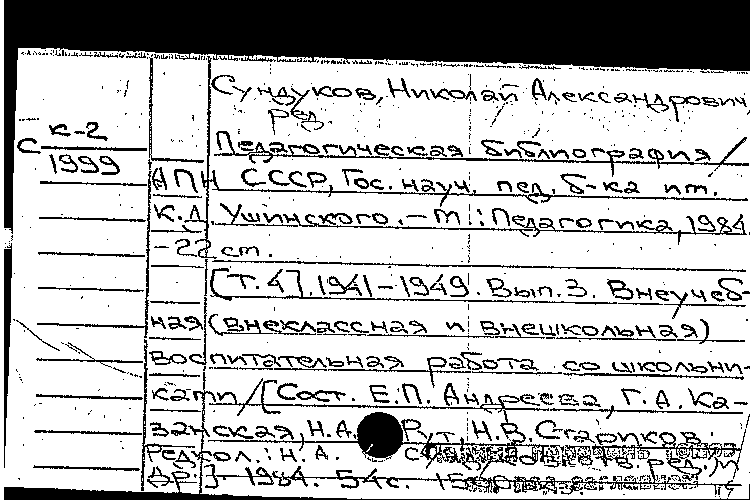 Сундуков, Николай Александрович
ред.
к-2
С
1999
Педагогическая библиография /
АПН СССР, Гос. науч. пед. б-ка им.
К.Д. Ушинского. – М.: Педагогика, 1984.
– 22 см.
[Т. 4]. 1941–1949. Вып. 3. Внеучеб-
ная (внеклассная и внешкольная)
воспитательная работа со школьни-
ками / [Сост. Е.П. Андреева, Г.А. Ка-
занская, Н.А. Н.В. Стариков:
Редкол.: Н.А. ред. и
др.]. 1984. 54 с.